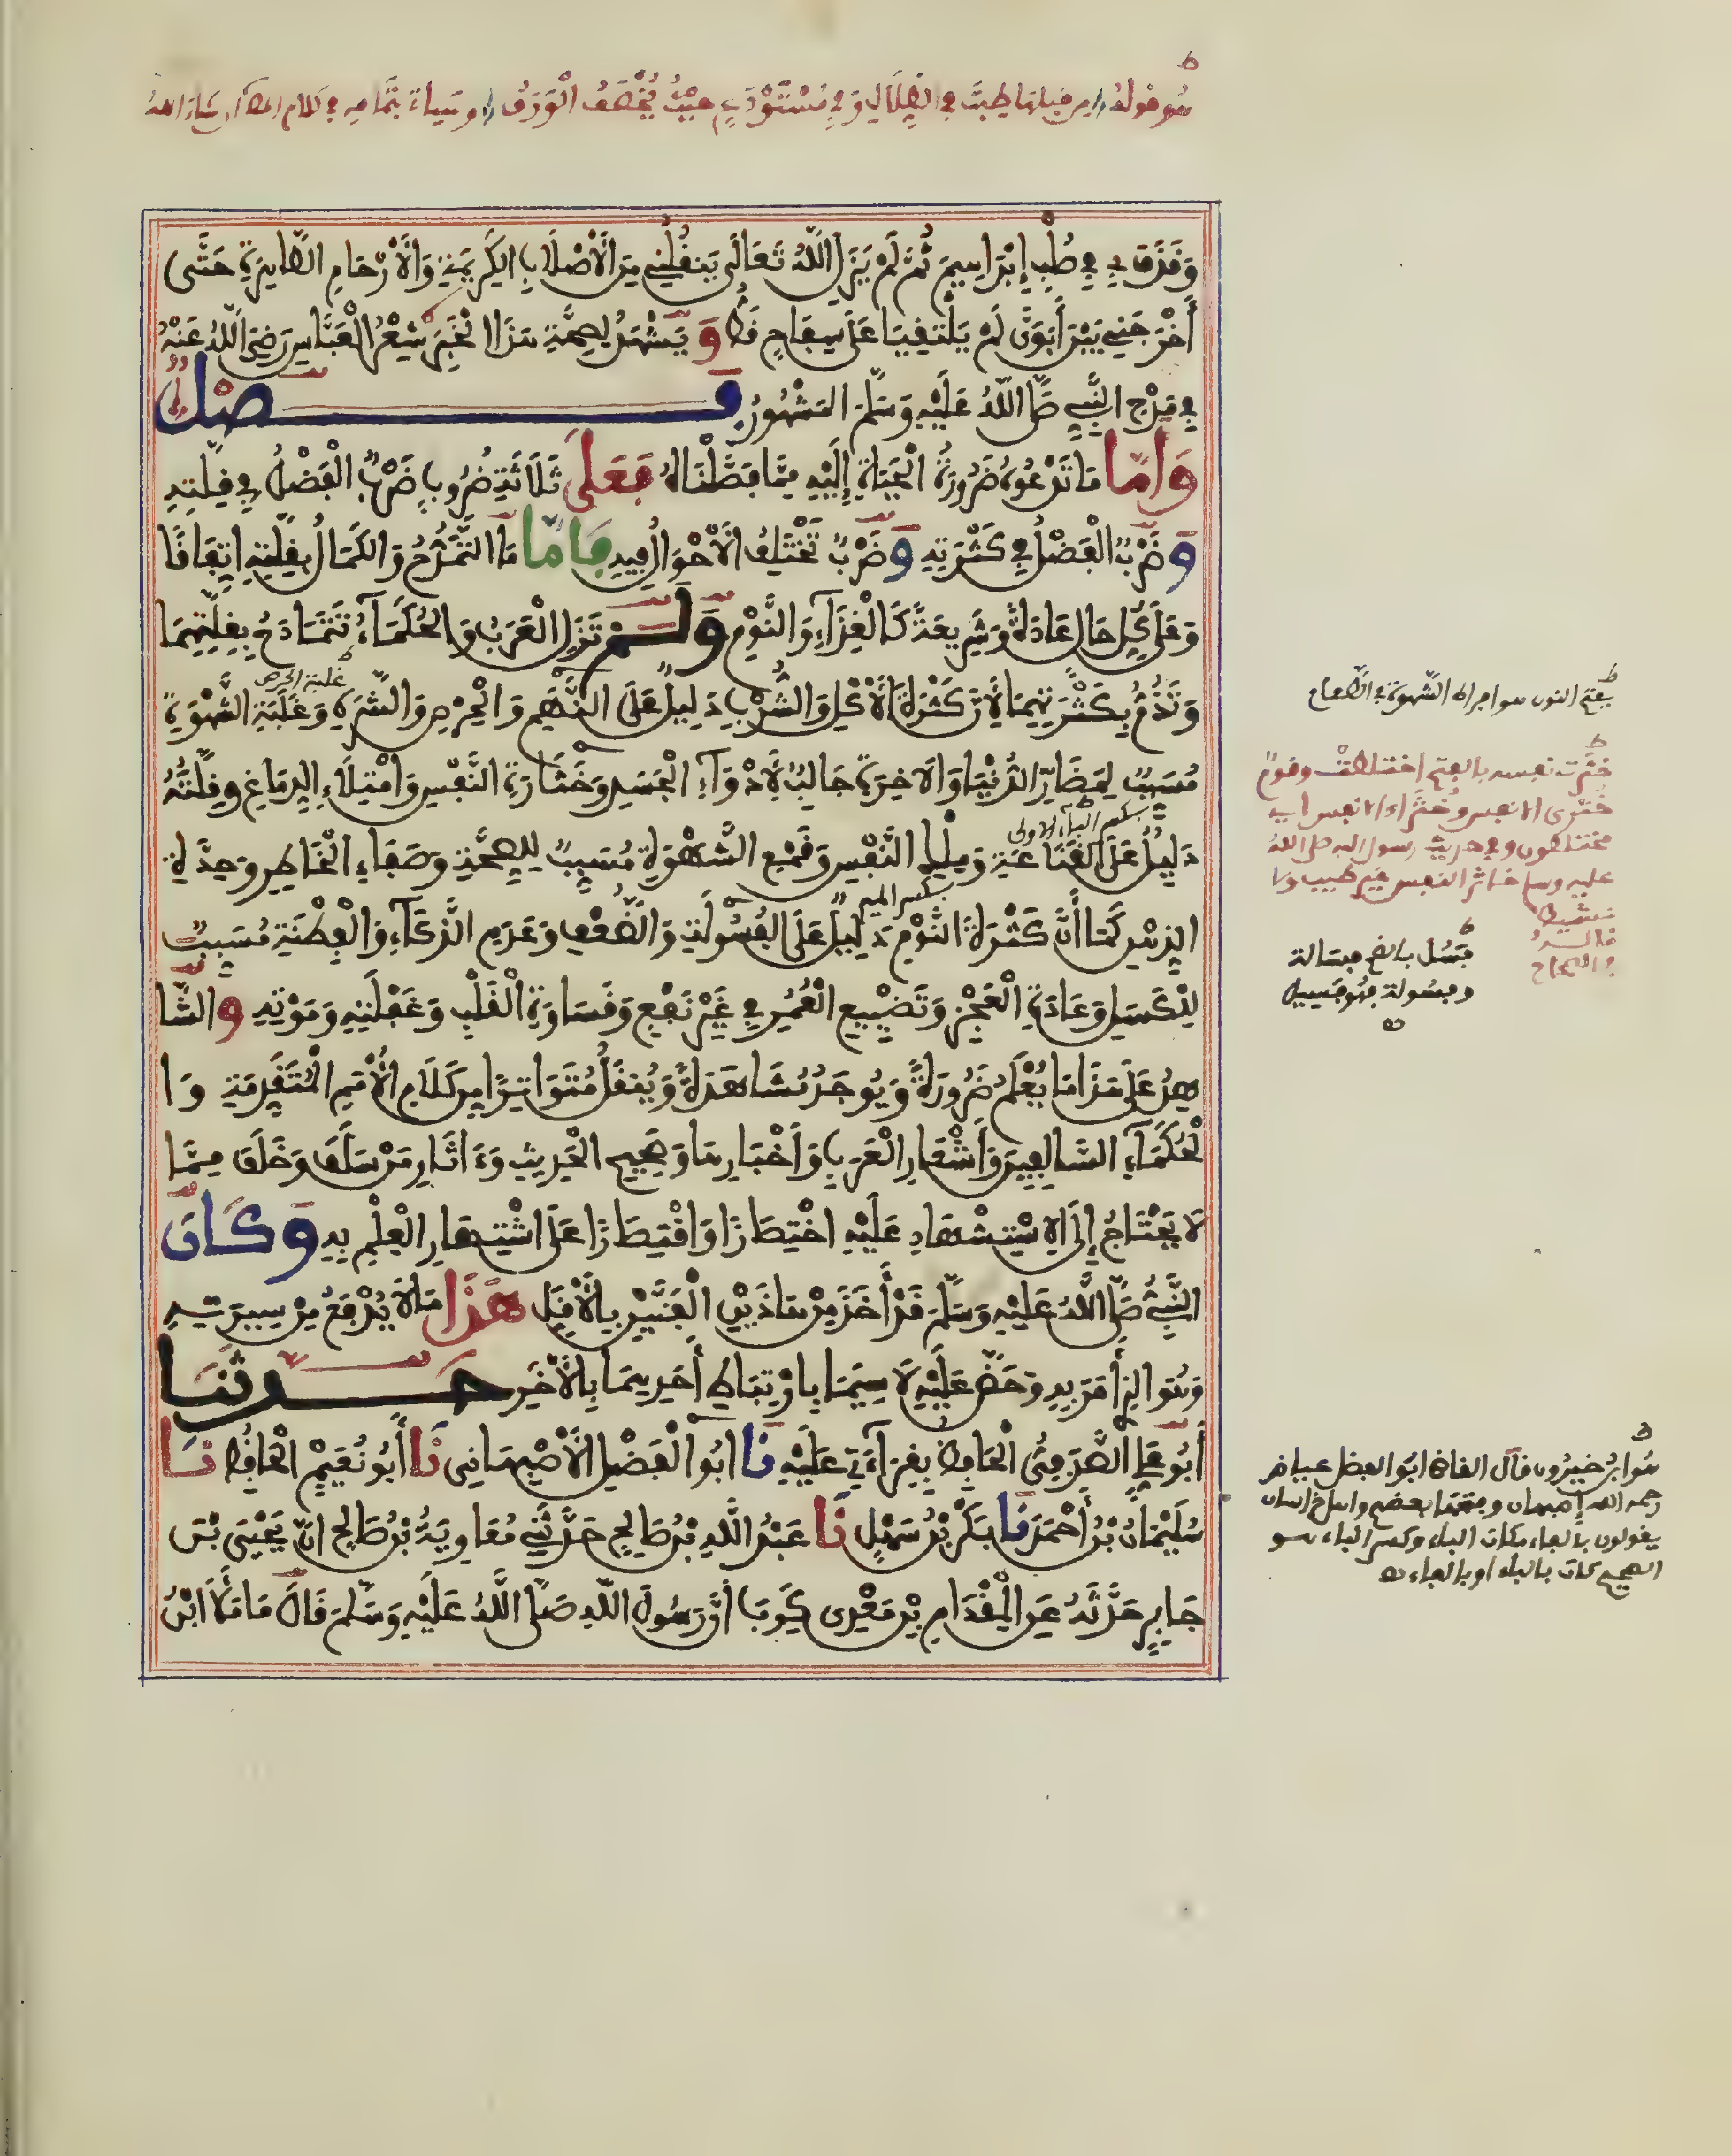 هو قوله من قبلها طبت في الظلال وفي مُسْتَوْدَعٍ حيثُ يُخْصَفُ الْوَرَقُ وسياتي بتمامه في كلام المؤلف ان شاء الله
وَقَذَفَ بِي فِي صُلْبِ إِبْرَاهِيمَ ثُمَّ لَمْ يَزَلِ اللَّهُ تَعَالَى يَنقُلُنِي مِنَ الْأَصْلَابِ الْكَرِيمَةِ وَالْأَرْحَامِ الطَّاهِرَةِ حَتَّى
أَخْرَجَنِي بَيْنَ أَبَوَيَّ لَمْ يَلْتَقِيَا عَلَى سِفَاحٍ قَطُّ وَيَشْهَدُ لِصِحَّةِ هَذَا الْخَبَرِ شِعْرُ الْعَبَّاسِ رَضِيَ اللَّهُ عَنْهُ
فِي مَدْحِ النَّبِيِّ صَلَّى اللَّهُ عَلَيْهِ وَسَلَّمَ الْمَشْهُورُ فصل
وَأَمَّا مَا تَدْعُو ضَرُورَةُ الْحَيَاةِ إِلَيْهِ مِمَّا فَصَّلْنَاهُ فَعَلَى ثَلَاثَةِ ضُرُوبٍ ضَرْبٌ الْفَضْلُ فِي قِلَّتِهِ
وَضَرْبٌ الْفَضْلُ فِي كَثْرَتِهِ وَضَرْبٌ تَخْتَلِفُ الْأَحْوَالُ فِيهِ فَأَمَّا مَا التَّمَدُّحُ وَالْكَمَالُ بِقِلَّتِهِ اتِّفَاقًا
وَعَلَى كُلِّ حَالٍ عَادَةً وَشَرِيعَةً كَالْغِذَاءِ وَالنَّوْمِ وَلَمْ تَزَلِ الْعَرَبُ وَالْحُكَمَاءُ تَتَمَادَحُ بِقِلَّتِهِمَا
وَتَذُمُّ بِكَثْرَتِهِمَا لِأَنَّ كَثْرَةَ الْأَكْلِ وَالشُّرْبِ دَلِيلٌ عَلَى النَّهَمِ وَالْحِرْصِ وَالشَّرَهِ وَغَلَبَةِ الشَّهْوَةِ
غلبة الحرص
مُسَبِّبٌ لِمَضَارِّ الدُّنْيَا وَالْآخِرَةِ جَالِبٌ لِأَدْوَاءِ الْجَسَدِ وَخَثَارَةِ النَّفْسِ وَامْتِلَاءِ الدِّمَاغِ وَقِلَّتُهُ
بكسر الباء الاولى
دَلِيلٌ عَلَى الْقَنَاعَةِ وَمِلْكِ النَّفْسِ وَقَمْعِ الشَّهْوَةِ مُسَبِّبٌ لِلصِّحَّةِ وَصَفَاءِ الْخَاطِرِ وَحِدَّةِ
بكسر الميم
الذِّهْنِ كَمَا أَنَّ كَثْرَةَ النَّوْمِ دَلِيلٌ عَلَى الْفُسُولَةِ وَالضُّعْفِ وَعَدَمِ الذَّكَاءِ وَالْفِطْنَةِ مُسَبِّبٌ
لِلْكَسَلِ وَعَادَةِ الْعَجْزِ وَتَضْيِيعِ الْعُمُرِ فِي غَيْرِ نَفْعٍ وَقَسَاوَةِ الْقَلْبِ وَغَفْلَتِهِ وَمَوْتِهِ وَالشَّا
هِدُ عَلَى هَذَا مَا يُعْلَمُ ضَرُورَةً وَيُوجَدُ مُشَاهَدَةً وَيُنقَلُ مُتَوَاتِرًا مِن كَلَامِ الْأُمَمِ الْمُتَقَدِّمَةِ وَا
لْحُكَمَاءِ السَّالِفِينَ وَأَشْعَارِ الْعَرَبِ وَأَخْبَارِهَا وَصَحِيحِ الْحَدِيثِ وَءَاثَارِ مَنْ سَلَفَ وَخَلَفَ مِمَّا
لَا يَحْتَاجُ إِلَى الِاسْتِشْهَادِ عَلَيْهِ اخْتِصَارًا وَاقْتِصَارًا عَلَى اشْتِهَارِ الْعِلْمِ بِهِ وَكَانَ
النَّبِيُّ صَلَّى اللَّهُ عَلَيْهِ وَسَلَّمَ قَدْ أَخَذَ مِنْ هَاذَيْنِ الْفَنَّيْنِ بِالْأَقَلِّ هَذَا مَا لَا يُدْفَعُ مِنْ سِيرَتِهِ
وَهُوَ الَّذِي أَمَرَ بِهِ وَحَضَّ عَلَيْهِ لَا سِيَّمَا بِارْتِبَاطِ أَحَدِهِمَا بِالْأَخَرِ حَدثنا
أَبُو عَلِيٍّ الصَّدَفِيُّ الْحَافِظُ بِقِرَاءَتِي عَلَيْهِ نَا أَبُو الْفَضْلِ الْأَصْبِهَانِي نَا أَبُو نُعَيْمٍ الْحَافِظُ نَا
سُلَيْمَانُ بْنُ أَحْمَدَ نَا بَكْرُ بْنُ سَهْلٍ نَا عَبْدُ اللَّهِ بْنُ صَالِحٍ حَدَّثَنِي مُعَاوِيَةُ بْنُ صَالِحٍ أَنَّ يَحْيَى بْنَ
جَابِرٍ حَدَّثَهُ عَنِ الْمِقْدَامِ بْنِ مَعْدِي كَرِبَ أَنَّ رَسُولَ اللَّهِ صَلَّى اللَّهُ عَلَيْهِ وَسَلَّمَ قَالَ مَا مَلَأَ ابْنُ
بفتح النون هو افراط الشهوة في الطعام
خَثَرت نفسه بالفتح اختلطت وقومٌ
خُثْرى الانفس وخُثَراء الانفس اي
مختلطون وفي حديث رسول الله صلى الله
عليه وسلم خاثر النفس غير طيب ولا
نشيط
قاله
في الصحاح
فسُل بالضم فسالة
وفسولة فهو فسيل
هو ابن خيرون قال القاضي ابو الفضل عياض
رحمه الله إصبهان وبفتحها بعضهم واهل خراسان
يقولون بالفاء مكان الباء وكسر الباء هو
الصحيح كان بالباء او بالفاء